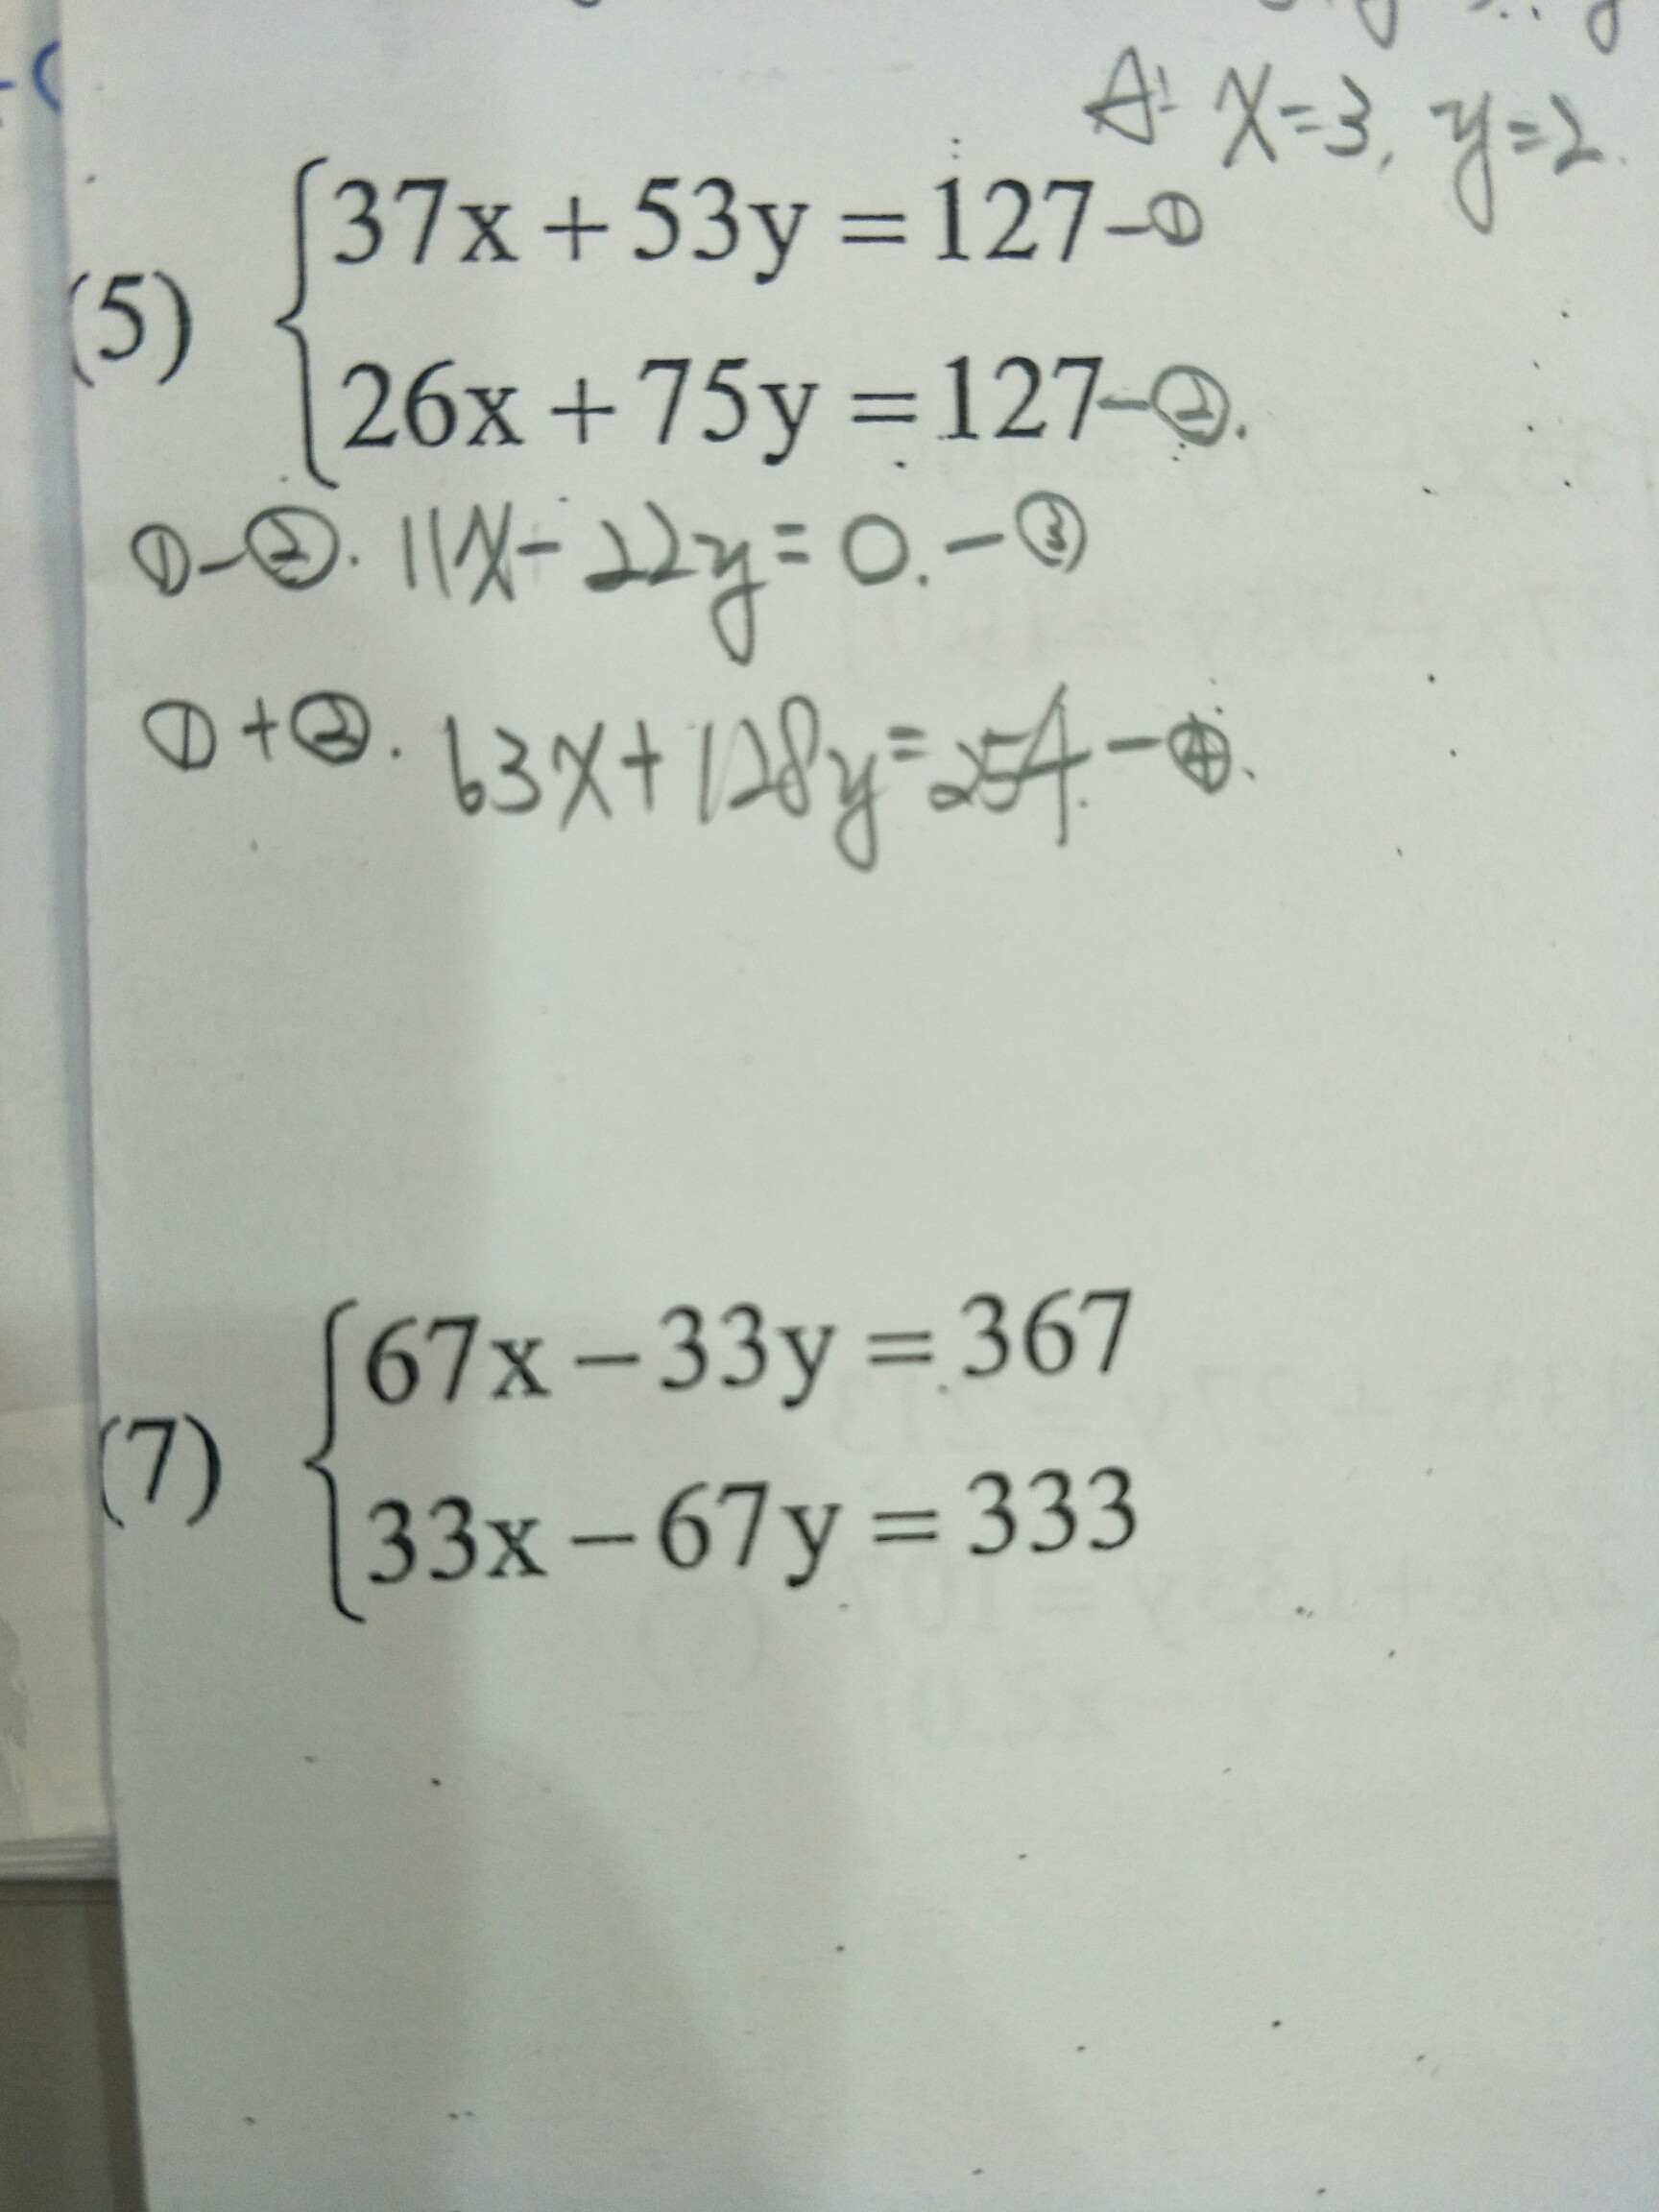 A: x=3, y=2.
(5) { 37x + 53y = 127 -①
26x + 75y = 127 -②.
①-②. 11x - 22y = 0. -③
①+②. 63x + 128y = 254. -④.
(7) { 67x - 33y = 367
33x - 67y = 333